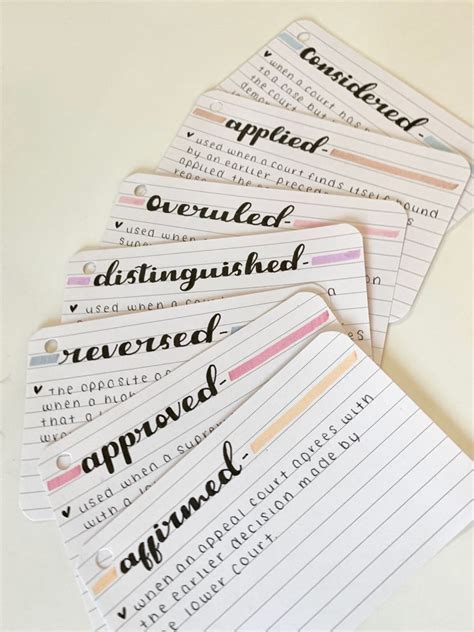 considered-
♥ when a court has
to a case but
the court
applied-
♥ used when a court finds itself bound
by an earlier
applied the
overuled-
♥ used when
distinguished-
♥ used when a
reversed-
♥ the opposite
when a
that a
approved-
♥ used when a
with a
affirmed-
♥ when an appeal court agrees with
the earlier decision made by
lower court.